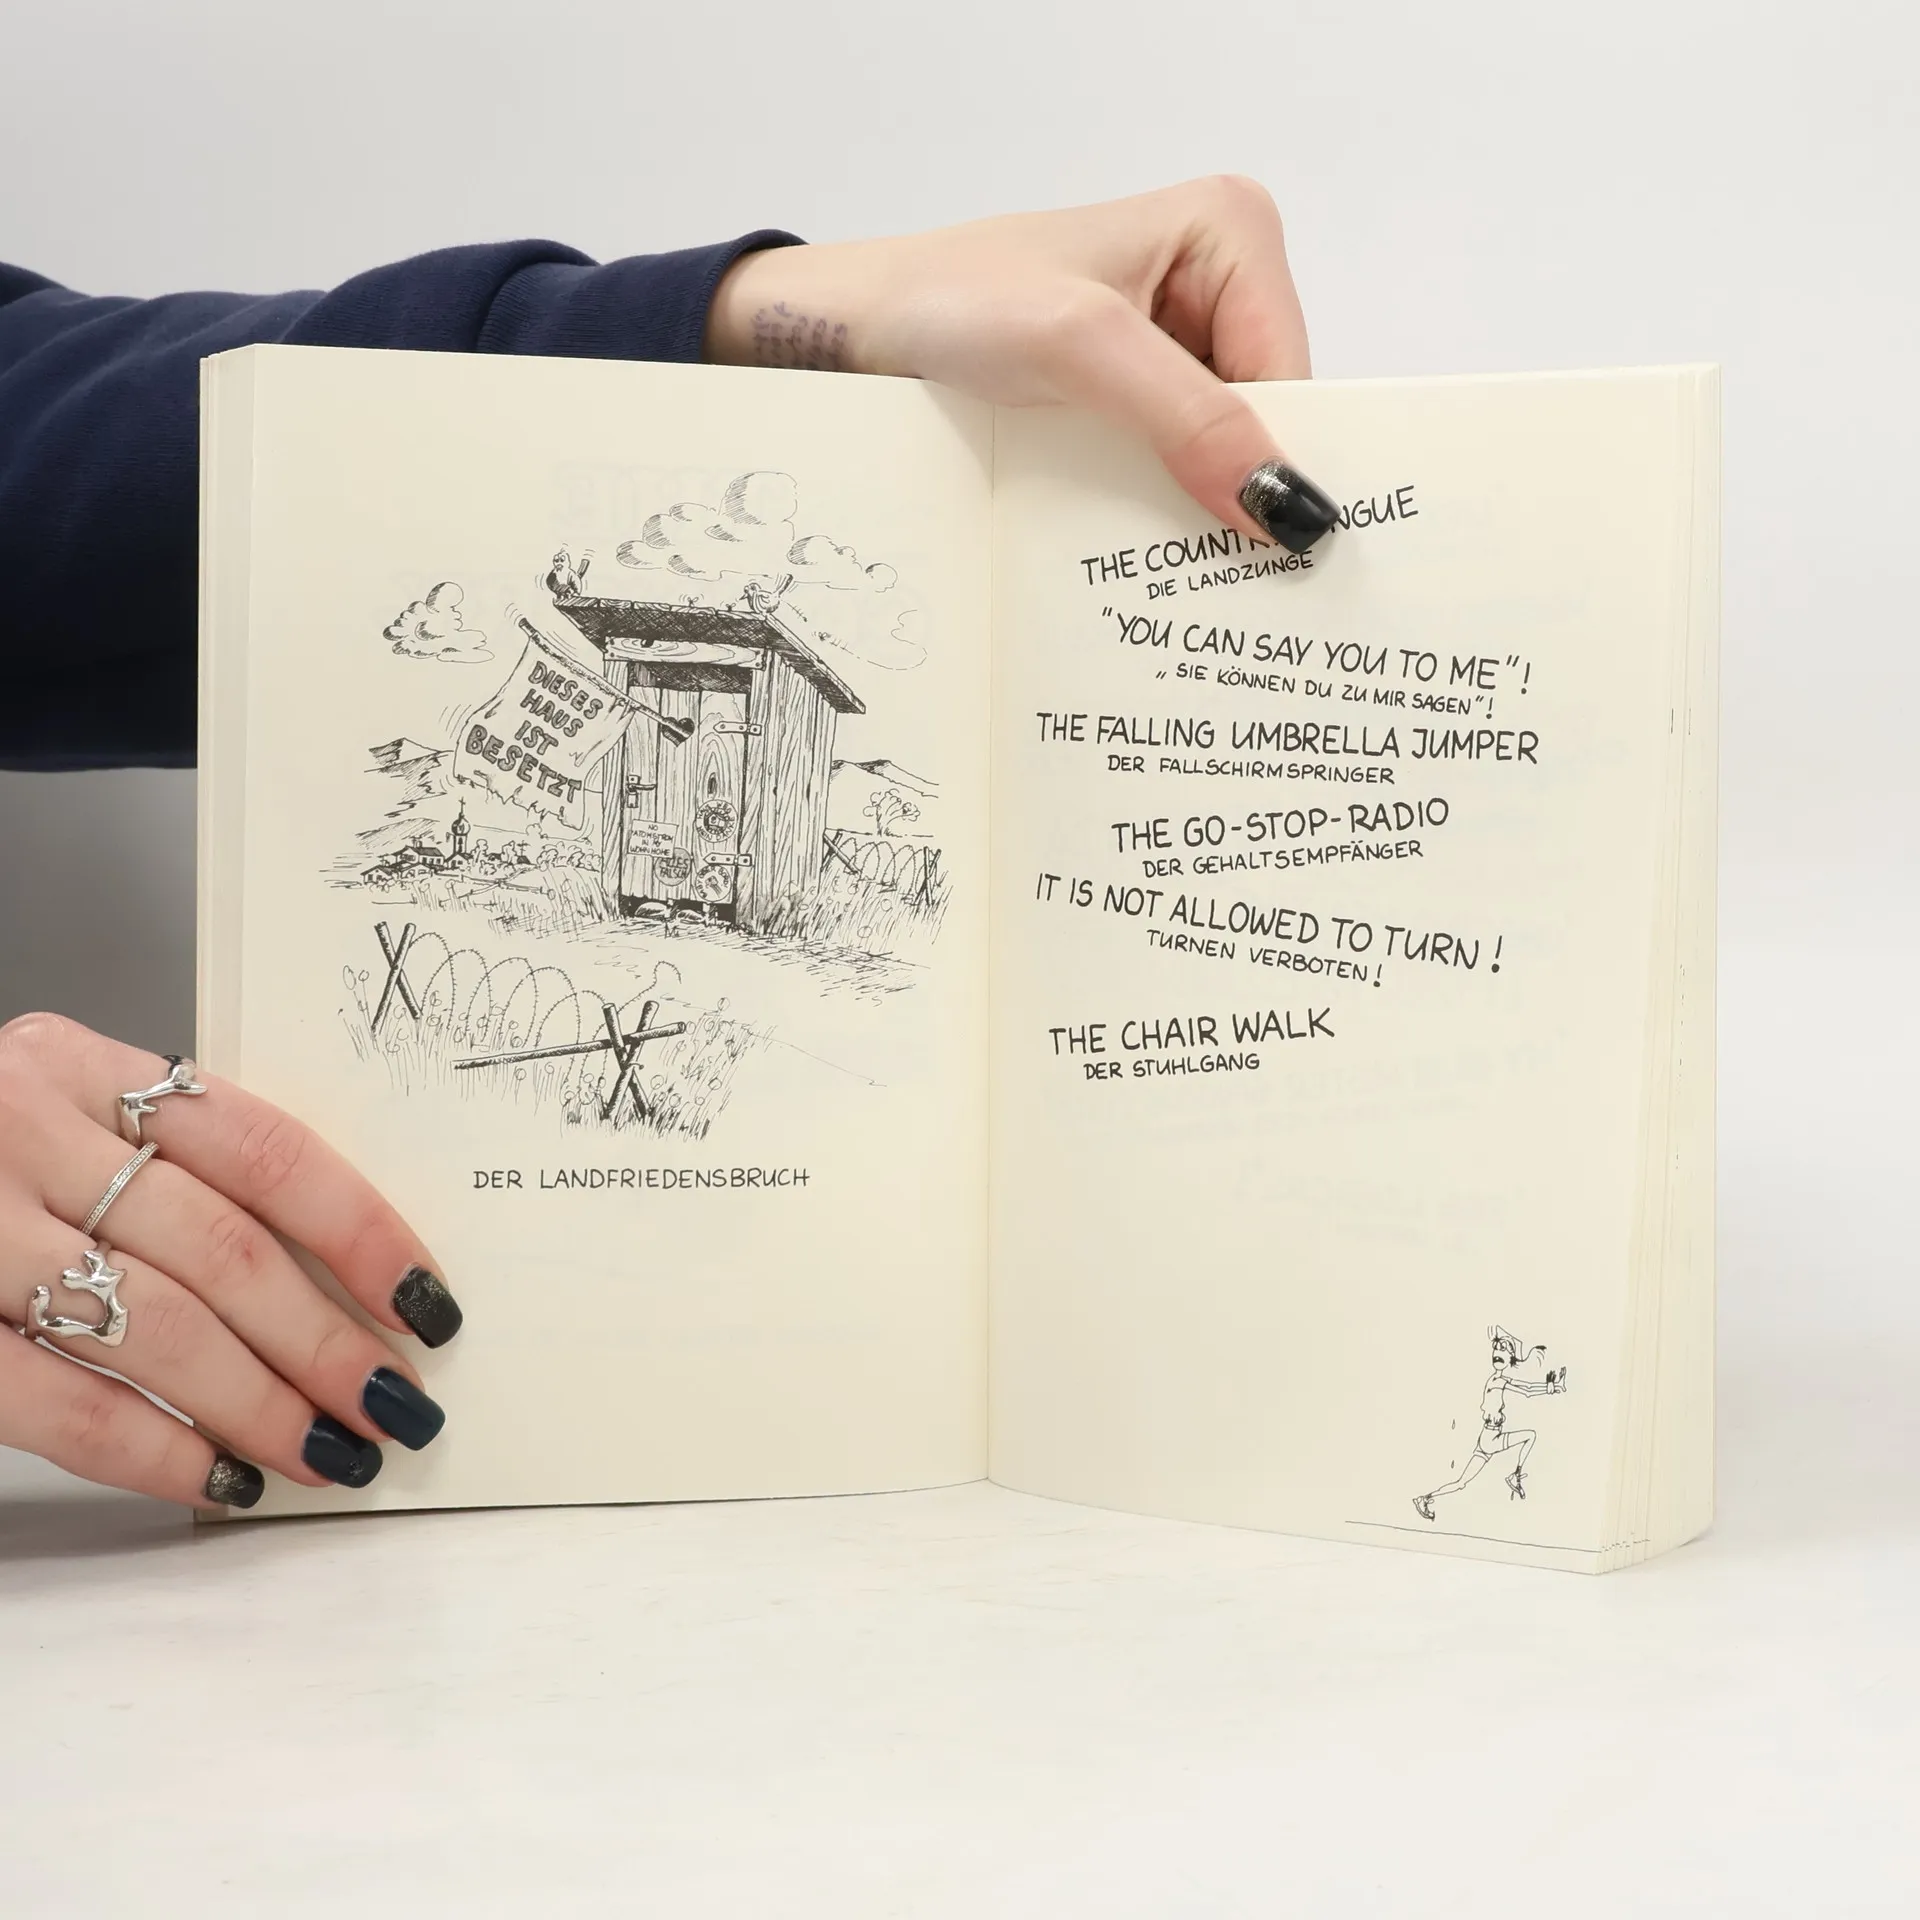 DIESES
HAUS
IST
BESETZT
NO
ATOMSTROM
IN MY
WOHNHOHE
ALLES
FALSCH
DER LANDFRIEDENSBRUCH
THE
DIE LANDZUNGE
"YOU CAN SAY YOU TO ME"!
„SIE KÖNNEN DU ZU MIR SAGEN"!
THE FALLING UMBRELLA JUMPER
DER FALLSCHIRMSPRINGER
THE GO-STOP-RADIO
DER GEHALTSEMPFÄNGER
IT IS NOT ALLOWED TO TURN!
TURNEN VERBOTEN!
THE CHAIR WALK
DER STUHLGANG